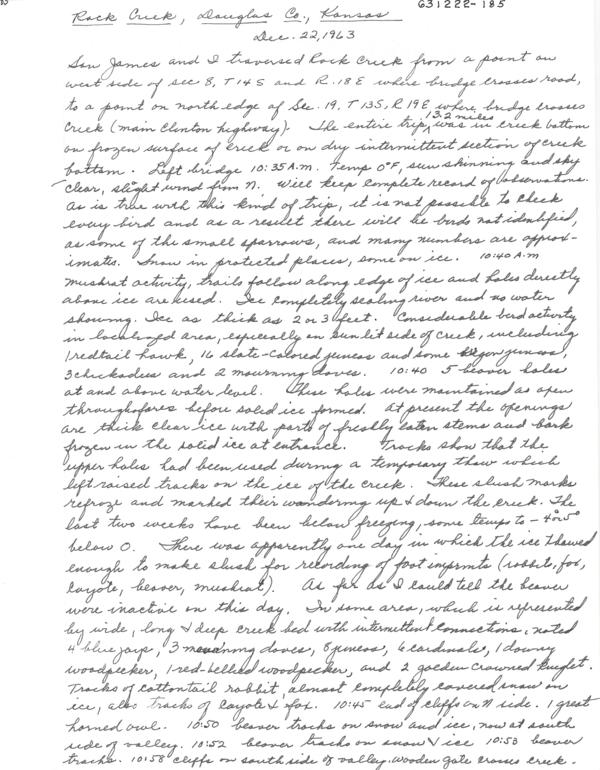 631222-185
Rock Creek, Douglas Co., Kansas
Dec. 22, 1963
Son James and I traversed Rock Creek from a point on
west side of sec 8, T 14 S and R. 18 E where bridge crosses road,
to a point on north edge of Sec. 19, T 13S, R 19 E, where bridge crosses
Creek (main Clinton highway). The entire trip, 13.2 miles was in creek bottom
on frozen surface of creek or on dry intermittent section of creek
bottom. Left bridge 10:35 A.m. Temp 0°F, sun shinning and sky
clear, slight wind from N. Will keep complete record of observations.
As is true with this kind of trip, it is not possible to check
every bird and as a result there will be birds not identified,
as some of the small sparrows, and many numbers are approx-
imate. Snow in protected places, some on ice. 10:40 A.m
muskrat activity, trails follow along edge of ice and holes directly
above ice are used. Ice completely sealing river and no water
showing. Ice as thick as 2 or 3 feet. Considerable bird activity
in localized area, especially on sunlit side of creek, including
1 redtail hawk, 16 slate-colored juncos and some juncos,
3 chickadees and 2 mourning doves. 10:40 5 beaver holes
at and above water level. These holes were maintained as open
throughofares before solid ice formed. At present the openings
are thick clear ice with parts of freshly eaten stems and bark
frozen in the solid ice at entrance. Tracks show that the
upper holes had been used during a temporary thaw which
left raised tracks on the ice of the creek. These slush marks
refroze and marked their wandering up & down the creek. The
last two weeks have been below freezing, some temps to -4 or 5°
below 0. There was apparently one day in which the ice thawed
enough to make slush for recording of foot imprints (rabbit, fox,
Coyote, beaver, muskrat). As far as I could tell the beaver
were inactive on this day. In some area, which is represented
by wide, long & deep creek bed with intermittent connections, noted
4 blue jays, 3 mourning doves, 8 juncos, 6 cardinals, 1 downy
woodpecker, 1 red-bellied woodpecker, and 2 golden crowned kinglet.
Tracks of cottontail rabbit, almost completely covered snow on
ice, also tracks of coyote & fox. 10:45 end of cliffs on N side. 1 great
horned owl. 10:50 beaver tracks on snow and ice, now at south
side of valley. 10:52 beaver tracks on snow & ice 10:53 beaver
tracks. 10:58 cliffs on south side of valley. wooden gate crosses creek.